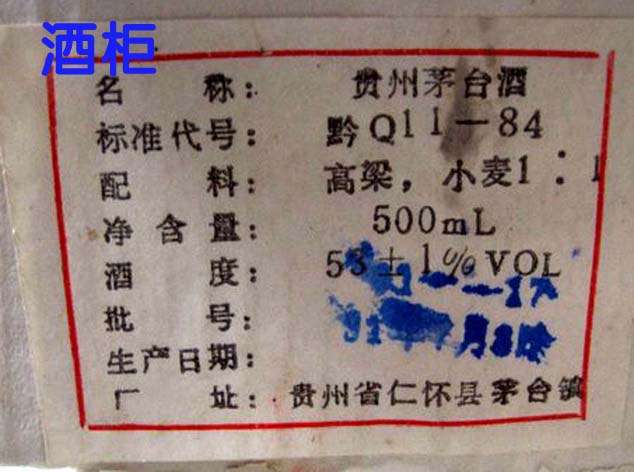 酒柜
名 称：贵州茅台酒
标准代号：黔Q11－84
配 料：高粱，小麦1：1
净含量：500mL
酒 度：53±1%VOL
批 号：
生产日期：
厂 址：贵州省仁怀县茅台镇